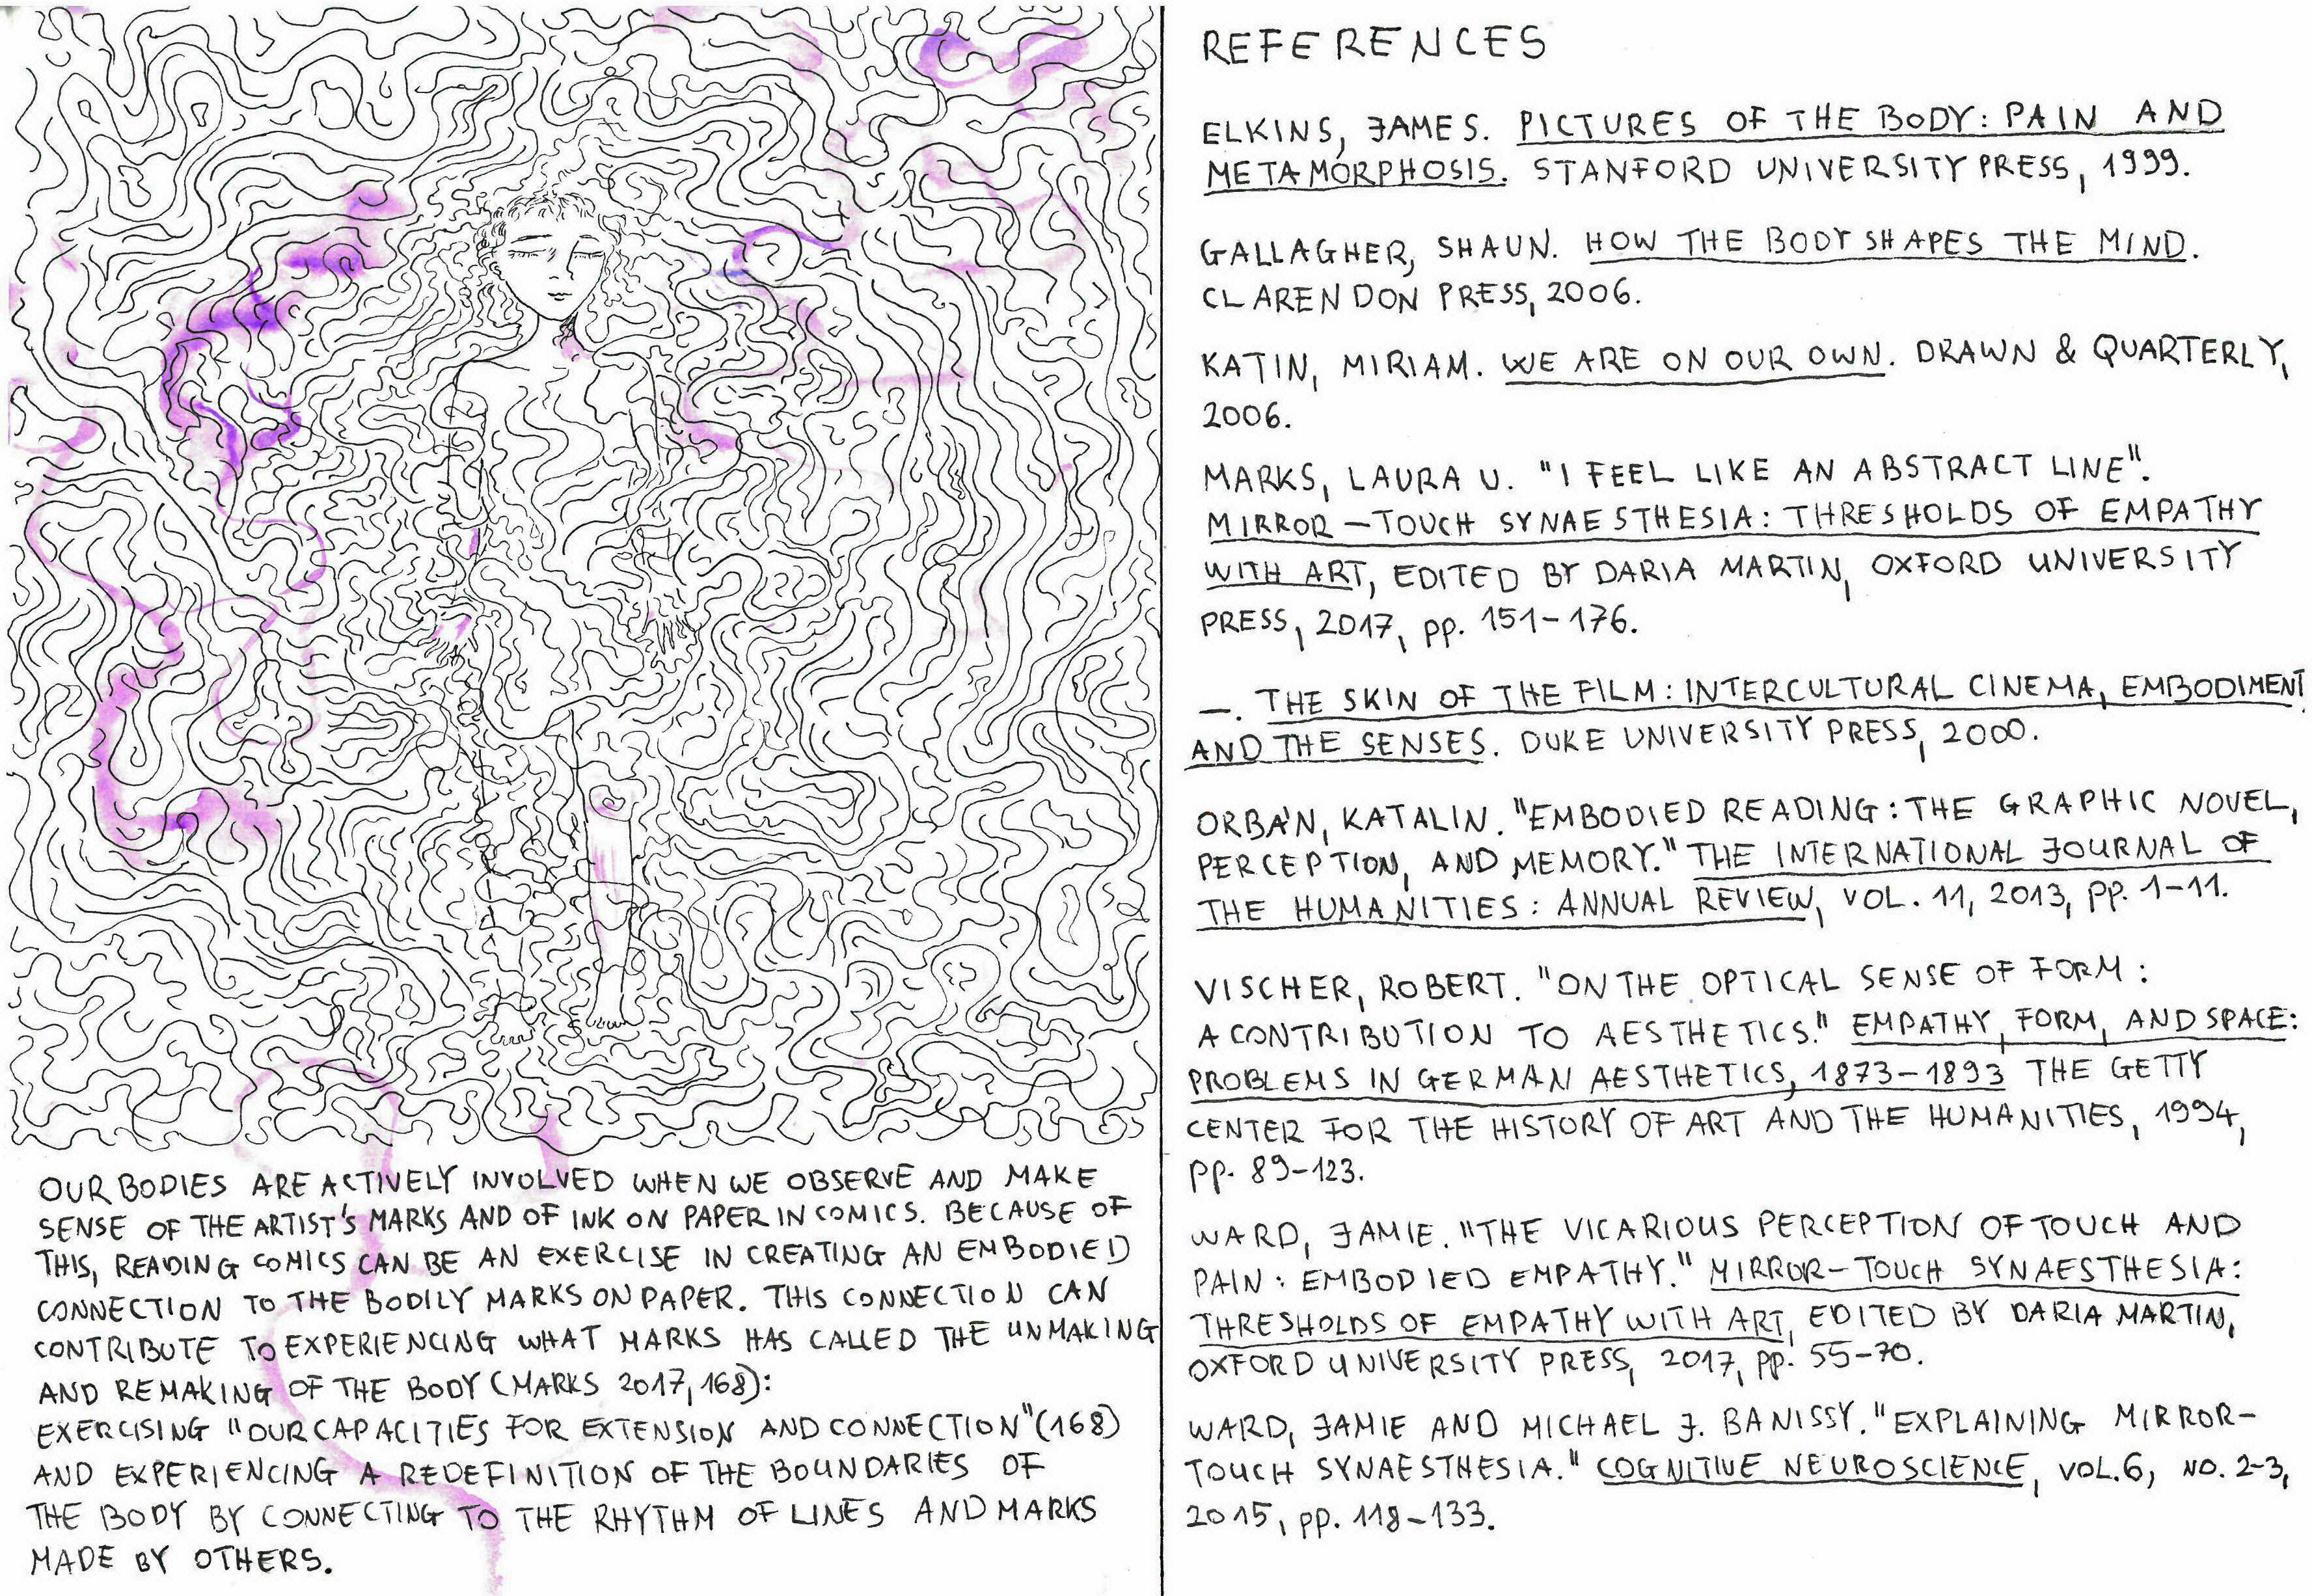 OUR BODIES ARE ACTIVELY INVOLVED WHEN WE OBSERVE AND MAKE
SENSE OF THE ARTIST'S MARKS AND OF INK ON PAPER IN COMICS. BECAUSE OF
THIS, READING COMICS CAN BE AN EXERCISE IN CREATING AN EMBODIED
CONNECTION TO THE BODILY MARKS ON PAPER. THIS CONNECTION CAN
CONTRIBUTE TO EXPERIENCING WHAT MARKS HAS CALLED THE UNMAKING
AND REMAKING OF THE BODY (MARKS 2017, 168):
EXERCISING "OUR CAPACITIES FOR EXTENSION AND CONNECTION" (168)
AND EXPERIENCING A REDEFINITION OF THE BOUNDARIES OF
THE BODY BY CONNECTING TO THE RHYTHM OF LINES AND MARKS
MADE BY OTHERS.
REFERENCES
ELKINS, JAMES. PICTURES OF THE BODY: PAIN AND
METAMORPHOSIS. STANFORD UNIVERSITY PRESS, 1999.
GALLAGHER, SHAUN. HOW THE BODY SHAPES THE MIND.
CLARENDON PRESS, 2006.
KATIN, MIRIAM. WE ARE ON OUR OWN. DRAWN & QUARTERLY,
2006.
MARKS, LAURA U. "I FEEL LIKE AN ABSTRACT LINE".
MIRROR-TOUCH SYNAESTHESIA: THRESHOLDS OF EMPATHY
WITH ART, EDITED BY DARIA MARTIN, OXFORD UNIVERSITY
PRESS, 2017, pp. 151-176.
—. THE SKIN OF THE FILM: INTERCULTURAL CINEMA, EMBODIMENT,
AND THE SENSES. DUKE UNIVERSITY PRESS, 2000.
ORBÁN, KATALIN. "EMBODIED READING: THE GRAPHIC NOVEL,
PERCEPTION, AND MEMORY." THE INTERNATIONAL JOURNAL OF
THE HUMANITIES: ANNUAL REVIEW, VOL. 11, 2013, pp. 1-11.
VISCHER, ROBERT. "ON THE OPTICAL SENSE OF FORM:
A CONTRIBUTION TO AESTHETICS." EMPATHY, FORM, AND SPACE:
PROBLEMS IN GERMAN AESTHETICS, 1873-1893 THE GETTY
CENTER FOR THE HISTORY OF ART AND THE HUMANITIES, 1994,
pp. 89-123.
WARD, JAMIE. "THE VICARIOUS PERCEPTION OF TOUCH AND
PAIN: EMBODIED EMPATHY." MIRROR-TOUCH SYNAESTHESIA:
THRESHOLDS OF EMPATHY WITH ART, EDITED BY DARIA MARTIN,
OXFORD UNIVERSITY PRESS, 2017, pp. 55-70.
WARD, JAMIE AND MICHAEL J. BANISSY. "EXPLAINING MIRROR-
TOUCH SYNAESTHESIA." COGNITIVE NEUROSCIENCE, VOL. 6, NO. 2-3,
2015, pp. 118-133.